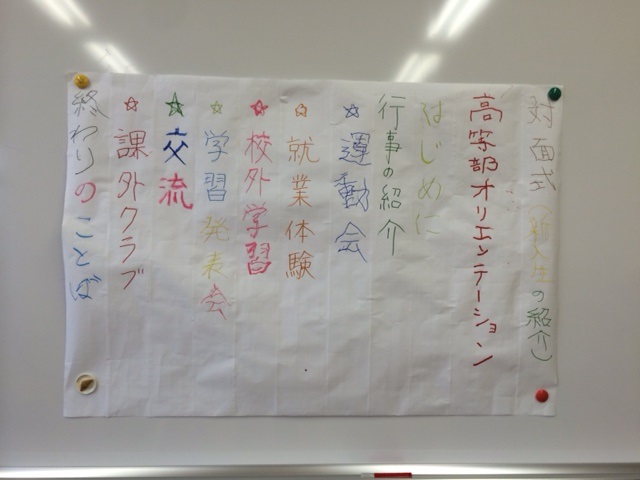 対面式（新入生の紹介）
高等部オリエンテーション
はじめに
行事の紹介
☆運動会
☆就業体験
☆校外学習
☆学習発表会
☆交流
☆課外クラブ
終わりのことば